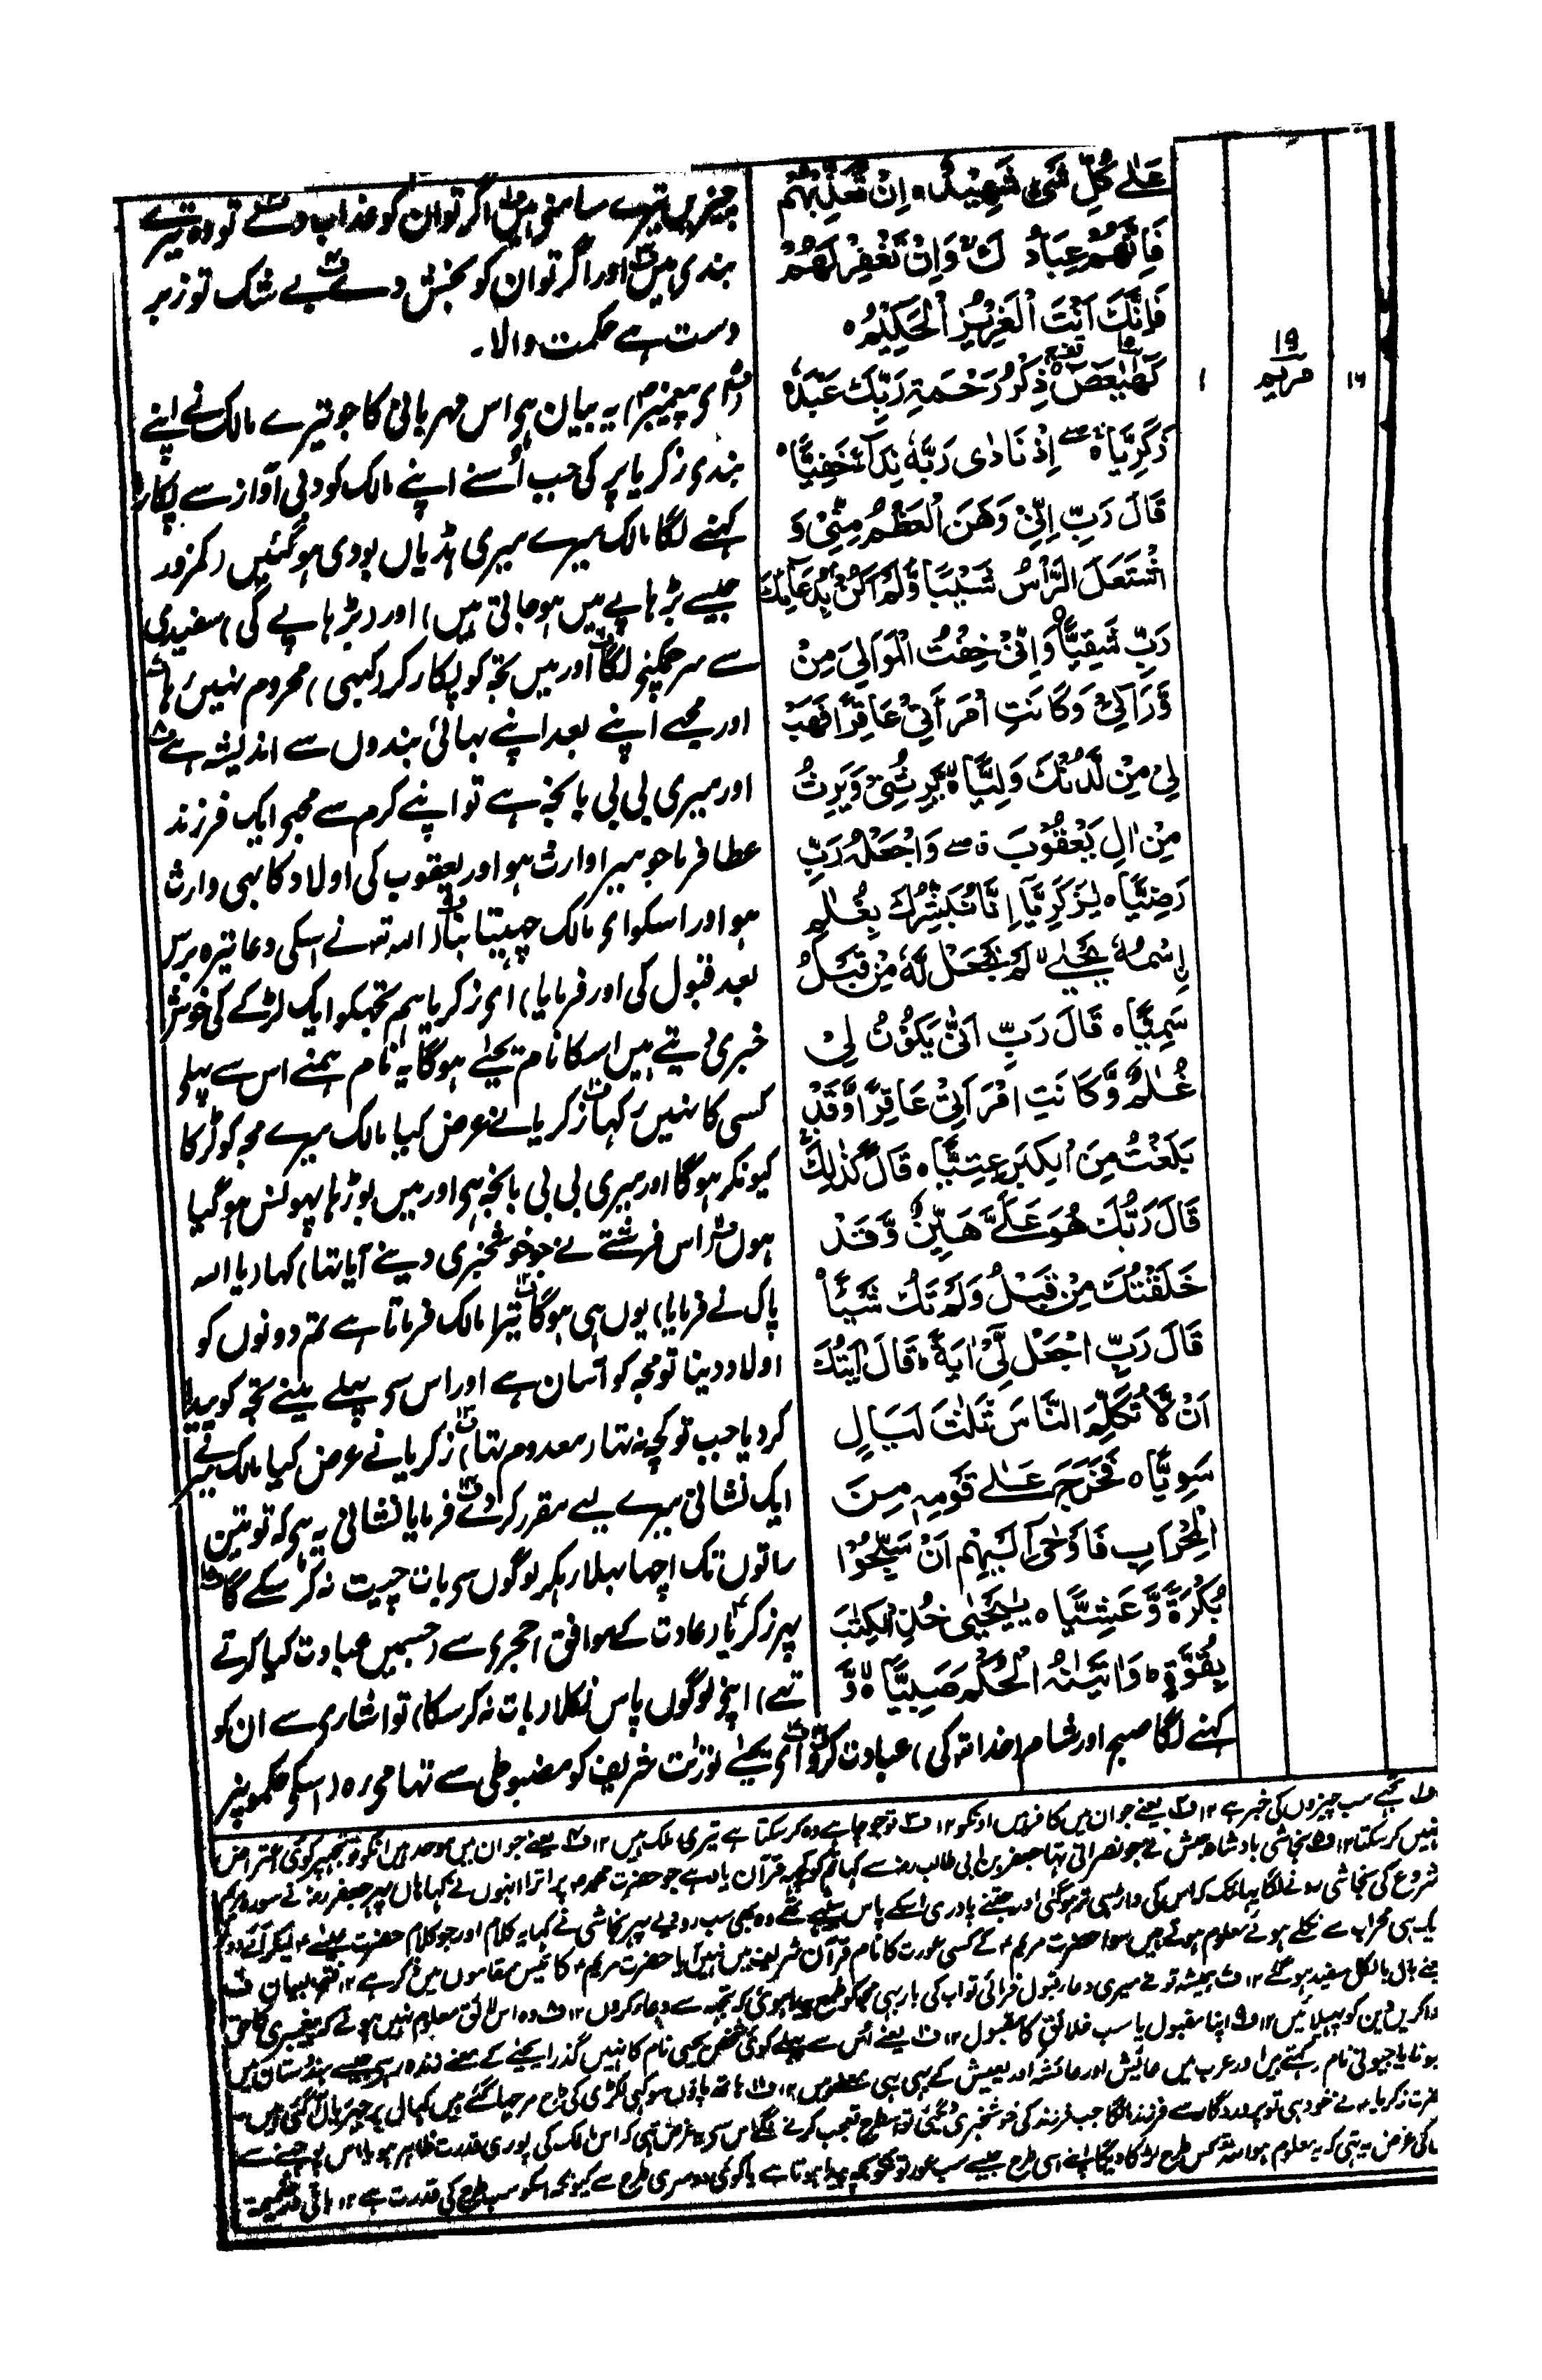 عَلٰے كُلِّ شَیْءٍ شَهِیْدٌ ۰ اِنْ تُعَذِّبْهُمْ
فَاِنَّهُمْ عِبَادُكَ ۚ وَاِنْ تَغْفِرْ لَهُمْ
فَاِنَّكَ اَنْتَ الْعَزِیْزُ الْحَكِیْمُ ۰
كٓهٰیٰعٓصٓ ۰ ذِكْرُ رَحْمَةِ رَبِّكَ عَبْدَهٗ
زَكَرِیَّا ۰ اِذْ نَادٰی رَبَّهٗ نِدَآءً خَفِیًّا ۰
قَالَ رَبِّ اِنِّیْ وَهَنَ الْعَظْمُ مِنِّیْ وَ
اشْتَعَلَ الرَّاْسُ شَیْبًا وَّلَمْ اَكُنْ بِدُعَآئِكَ
رَبِّ شَقِیًّا ۰ وَاِنِّیْ خِفْتُ الْمَوَالِیَ مِنْ
وَّرَآئِیْ وَكَانَتِ امْرَاَتِیْ عَاقِرًا فَهَبْ
لِیْ مِنْ لَّدُنْكَ وَلِیًّا ۰ یَّرِثُنِیْ وَیَرِثُ
مِنْ اٰلِ یَعْقُوْبَ ۰ وَاجْعَلْهُ رَبِّ
رَضِیًّا ۰ یٰزَكَرِیَّآ اِنَّا نُبَشِّرُكَ بِغُلٰمِ
اِسْمُهٗ یَحْیٰے ۙ لَمْ نَجْعَلْ لَّهٗ مِنْ قَبْلُ
سَمِیًّا ۰ قَالَ رَبِّ اَنّٰی یَكُوْنُ لِیْ
غُلٰمٌ وَّكَانَتِ امْرَاَتِیْ عَاقِرًا وَّقَدْ
بَلَغْتُ مِنَ الْكِبَرِ عِتِیًّا ۰ قَالَ كَذٰلِكَ
قَالَ رَبُّكَ هُوَ عَلَیَّ هَیِّنٌ وَّقَدْ
خَلَقْتُكَ مِنْ قَبْلُ وَلَمْ تَكُ شَیْئًا
قَالَ رَبِّ اجْعَلْ لِّیْٓ اٰیَةً ؕ قَالَ اٰیَتُكَ
اَنْ لَّا تُكَلِّمَ النَّاسَ ثَلٰثَ لَیَالٍ
سَوِیًّا ۰ فَخَرَجَ عَلٰے قَوْمِهٖ مِنَ
الْمِحْرَابِ فَاَوْحٰٓی اِلَیْهِمْ اَنْ سَبِّحُوْا
بُكْرَةً وَّعَشِیًّا ۰ یٰیَحْیٰی خُذِ الْكِتٰبَ
بِقُوَّةٍ ؕ وَاٰتَیْنٰهُ الْحُكْمَ صَبِیًّا ۰ وَّ
۱۹
مریم
۱
۱۶
چیزیں تیرے سامنے ہیں اگر تو ان کو عذاب دے تو وہ تیرے
بندی ہیں اور اگر تو ان کو بخش دے بے شک تو زبر
دست ہے حکمت والا۔
(ای پیغمبر) یہ بیان ہی اس مہربانی کا جو تیرے مالک نے اپنے
بندی زکریا پر کی جب اُسنے اپنے مالک کو دبی آواز سے پکارا
کہنے لگا مالک میرے میری ہڈیاں بودی ہو گئیں (کمزور
جیسے بڑہاپے میں ہو جاتی ہیں) اور (بڑہاپے کی) سفیدی
سے سر چمکنے لگا اور میں تجہ کو پکار کر (کبہی) محروم نہیں رہا
اور مجہے اپنے بعد اپنے بہائی بندوں سے اندیشہ ہے
اور میری بی بی بانجہ ہے تو اپنے کرم سے مجہے ایک فرزند
عطا فرما جو میرا وارث ہو اور یعقوب کی اولاد کا بہی وارث
ہو اور اسکو ای مالک چہیتا بنا (اللہ تہ نے اسکی دعا تیرہ برس
بعد قبول کی اور فرمایا) ای زکریا ہم تجہکو ایک لڑکے کی خوش
خبری دیتے ہیں اسکا نام یحیٰے ہوگا یہ نام ہمنے اس سے پہلے
کسی کا نہیں رکہا زکریا نے عرض کیا مالک میرے مجہ کو لڑکا
کیونکر ہوگا اور میری بی بی بانجہ ہی اور میں بوڑہا پہونس ہو گیا
ہوں (اس فرشتے نے جو خوشخبری دینے آیا تہا) کہا (یا اللہ
پاک نے فرمایا) یوں ہی ہوگا تیرا مالک فرماتا ہے تم دونوں کو
اولاد دینا تو مجہ کو آسان ہے اور اس سی پہلے مینے تجہ کو پیدا
کر دیا جب تو کچہ نہ تہا (معدوم تہا) زکریا نے عرض کیا مالک میرے
ایک نشانی میرے لیے مقرر کر دے فرمایا نشانی یہ ہی کہ تو تین
راتوں تک اچہا بہلا رہکر لوگوں سی بات چیت نہ کر سکے گا
پہر زکریا (عادت کے موافق) حجری سے (جسمیں عبادت کیا کرتے
تہے) اپنے لوگوں پاس نکلا (بات نہ کر سکا) تو اشاری سے ان کو
کہنے لگا صبح اور شام (خدا تہ کی) عبادت کرو ای یحیٰے توریت شریف کو مضبوطی سے تہامی رہ (اسکی حکموںپر
ف۱ تجہے سب چیزوں کی خبر ہے ۱۲ ف۲ یعنے جو ان میں کافر ہیں اونکو ۱۲ ف۳ تو جو چاہے وہ کر سکتا ہے تیری ملک ہیں ۱۲ ف۴ یعنے جو ان میں موحد ہیں انکو تو تجہپر کوئی اعتراض
نہیں کر سکتا ۱۲ ف۵ نجاشی بادشاہ حبش نے جو نصرانی تہا جعفر بن ابی طالب رض سے کہا تم کو کچہ قرآن یاد ہے جو حضرت محمد پر اترا انہوں نے کہا ہاں پہر جعفر رض نے سورہ مریم
شروع کی نجاشی رونے لگا یہانتک کہ اس کی داڑہی تر ہو گئی اور جتنے پادری اسکے پاس بیٹہے تہے وہ بھی سب رو دیے پہر نجاشی نے کہا یہ کلام اور جو کلام حضرت عیسٰے لیکر آئے دونوں
ایک ہی محراب سے نکلے ہوئے معلوم ہوتے ہیں سوا حضرت مریم کے کسی عورت کا نام قرآن شریف میں نہیں آیا حضرت مریم کا تیس مقاموں میں ذکر ہے ۱۲
بال بالکل سفید ہو گئے ۱۲ ف۷ ہمیشہ تو نے میری دعا قبول فرمائی تو اب کی بار بہی مجہکو طمع پیدا ہوئی کہ تجہہ سے دعا کروں ۱۲ ف۸ وہ اس لائق معلوم نہیں ہوتے کہ پیغمبری کا حق
ادا کریں دین کو پہیلائیں ۱۲ ف۹ اپنا مقبول یا سب خلائق کا مقبول ۱۲ ف۱۰ یعنے اُس سے پہلے کوئی شخص یحیی نام کا نہیں گذرا یحیٰے کے معنے زندہ رہی جیسے ہندوستان میں
نام رکہتے ہیں اور عرب میں عائش اور عائشہ اور یعیش کے بہی یہی معنے ہیں ۱۲ ف۱۱ ہاتہ پاؤں سوکہی لکڑی کی طرح مرجہا گئے ہیں کہال پر
حضرت زکریا نے خود ہی تو پروردگار سے فرزند مانگا جب فرزند کی خوشخبری دی گئی تو اسطرح تعجب کرنے لگے اس سی یہ غرض تہی کہ اس مالک کی پوری قدرت ظاہر ہو یا اس پوچہنے سے
کی غرض یہ تہی کہ یہ معلوم ہو اللہ تہ کس طرح لڑکا دیگا اسی طرح جیسے سب عورتوں کو بچہ پیدا ہوتا ہے یا کوئی دوسری طرح سے کیونکہ اسکو سب طرح کی قدرت ہے ۱۲